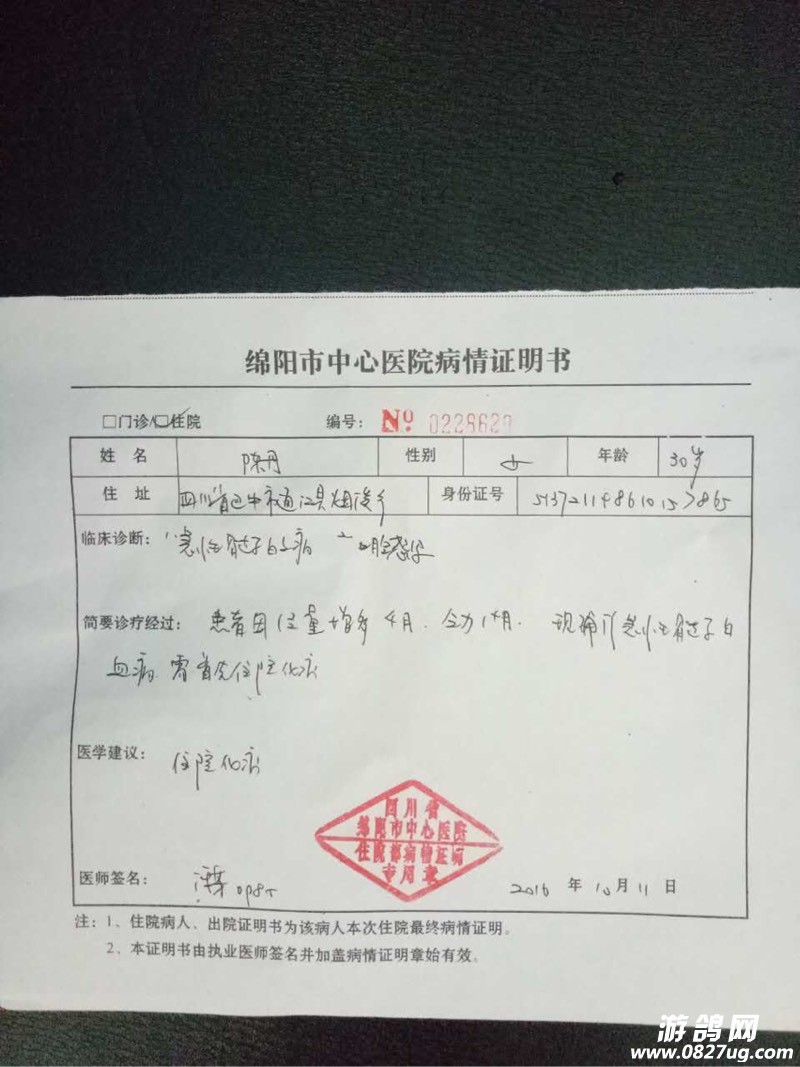 绵阳市中心医院病情证明书
□门诊/□住院 编号: No. 0228620
姓名 陈丹 性别 女 年龄 30岁
住址 四川省巴中市通江县烟溪乡 身份证号
临床诊断: 1、急性髓性白血病 2、肺感染
简要诊疗经过: 患者因 增多4月. 乏力1+月. 现确诊急性髓性白
血病. 需首先住院化疗
医学建议: 住院化疗
四川省
绵阳市中心医院
住院部病情证明
专用章
医师签名: 2016 年 10 月 11 日
注: 1、住院病人、出院证明书为该病人本次住院最终病情证明。
2、本证明书由执业医师签名并加盖病情证明章始有效。
游鸽网
www.0827ug.com